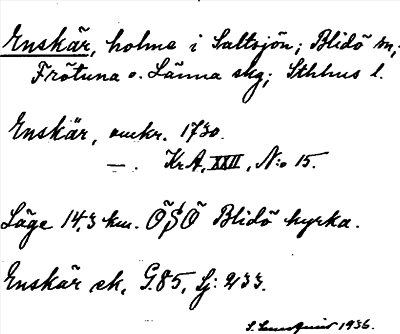 Enskär, holme i Saltsjön; Blidö sn,
Frötuna o. Länna skg; Sthlms l.
Enskär, omkr. 1730.
— . KrA, XXII, N:o 15.
Läge 14,3 km. ÖSÖ Blidö kyrka.
Enskär ek, G.85, Lj: 233.
1936.